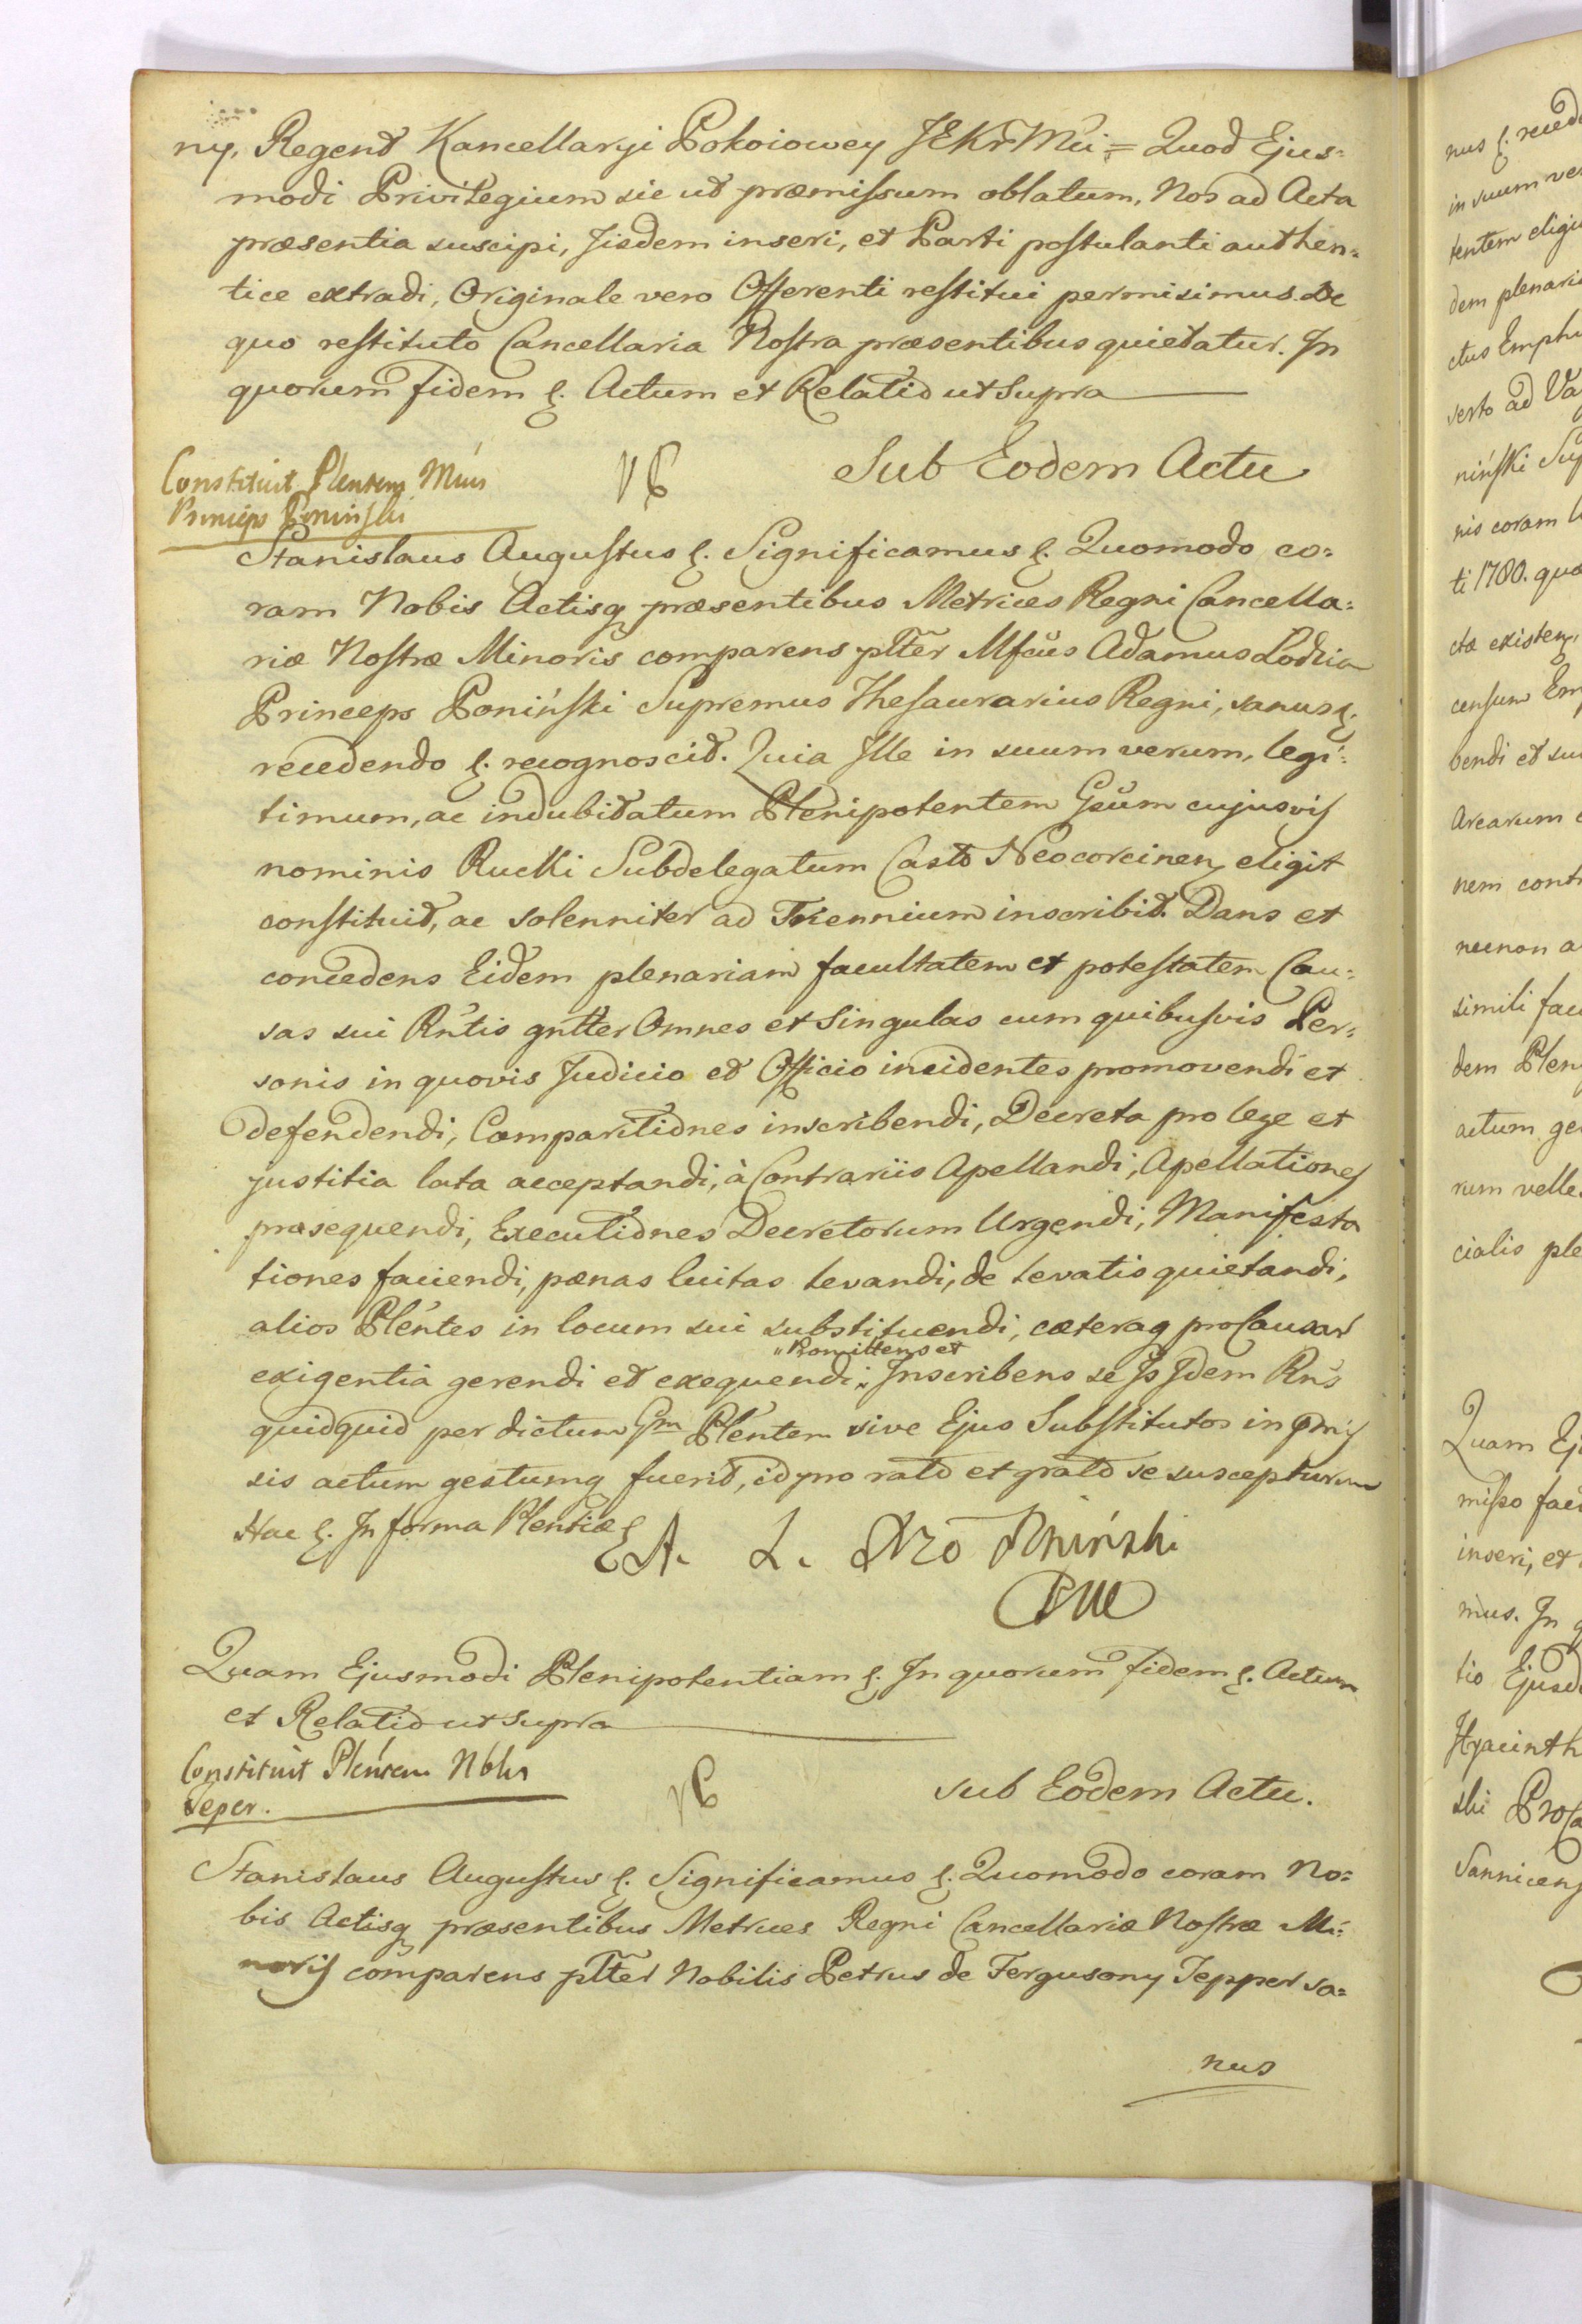 ny, Regent Kancellaryi Pokoiowey JEKr Mci = Quod Ejus=
modi Privilegium sic ut præmissum oblatum, Nos ad Acta
præsentia suscipi, Jisdem inseri, et Parti postulanti authen=
tice extradi, Originale vero Offerenti restitui permisimus. De
quo restituto Cancellaria Nostra præsentibus quietatur. In
quorum fidem &. Actum et Relatio ut supra
Constituit Plentem
Princeps Poninski
Sub Eodem Actu
Stanislaus Augustus &. Significamus &. Quomodo co=
ram Nobis Actisq præsentibus Metrices Regni Cancella=
riæ Nostræ Minoris comparens pltter Mfcus Adamus Lodzia
Princeps Poniński Supremus Thesaurarius Regni, sanus &.
recedendo &. recognoscit. Quia Ille in suum verum, legi=
timum, ac indubitatum Plenipotentem Gsum cujusvis
nominis Rucki Subdelegatum Casto Neocorcinen eligit
constituit, ac solenniter ad Triennium inscribit. Dans et
concedens Eidem plenariam facultatem et potestatem Cau=
sas sui Rntis gntter Omnes et Singulas cum quibusvis Per=
sonis in quovis Judicio et Officio incidentes promovendi et
defendendi, Comparitiones inscribendi, Decreta pro lege et
justitia lata acceptandi, à Contrariis Apellandi, Apellationes
prosequendi, Executiones Decretorum Urgendi, Manifesta
tiones faciendi, pænas luitas levandi, de levatis quietandi,
alios Pléntes in locum sui substituendi, cæteraq pro Causar
"Romittens et
exigentia gerendi et exequendi." Inscribens se Is Jdem Rns
quidquid per dictum Gm Pléntem sive Ejus Substitutos in pmis
sis actum gestumq fuerit, id pro rato et grato se suscepturum
Hac &. In forma Plentiæ &
A. L. Xżo Poniński
PWK
Quam Ejusmodi Plenipotentiam &. In quorum fidem &. Actum
et Relatio ut supra
Constituit Pléntem Nblis
Teper.
sub Eodem Actu.
Stanislaus Augustus &. Significamus &. Quomodo coram No=
bis Actisq præsentibus Metrices Regni Cancellariæ Nostræ Mi=
noris comparens pltter Nobilis Petrus de Fergusony Tepper sa=
nus
nus &. recede
in suum ver
tentem eligi
dem plenari
ctus Emphi
serto ad Va
niński Sup
nis coram
ti 1780. quo
cta existen,
censum Em
bendi et su
Arearum
nem contr
necnon a
simili fac
dem Plen
actum ge
rum velle.
cialis ple
Quam Ej
misso fac
inseri, et
mus. In q
tio Ejusd
Hyacinth
ski ProCa
Sannicens